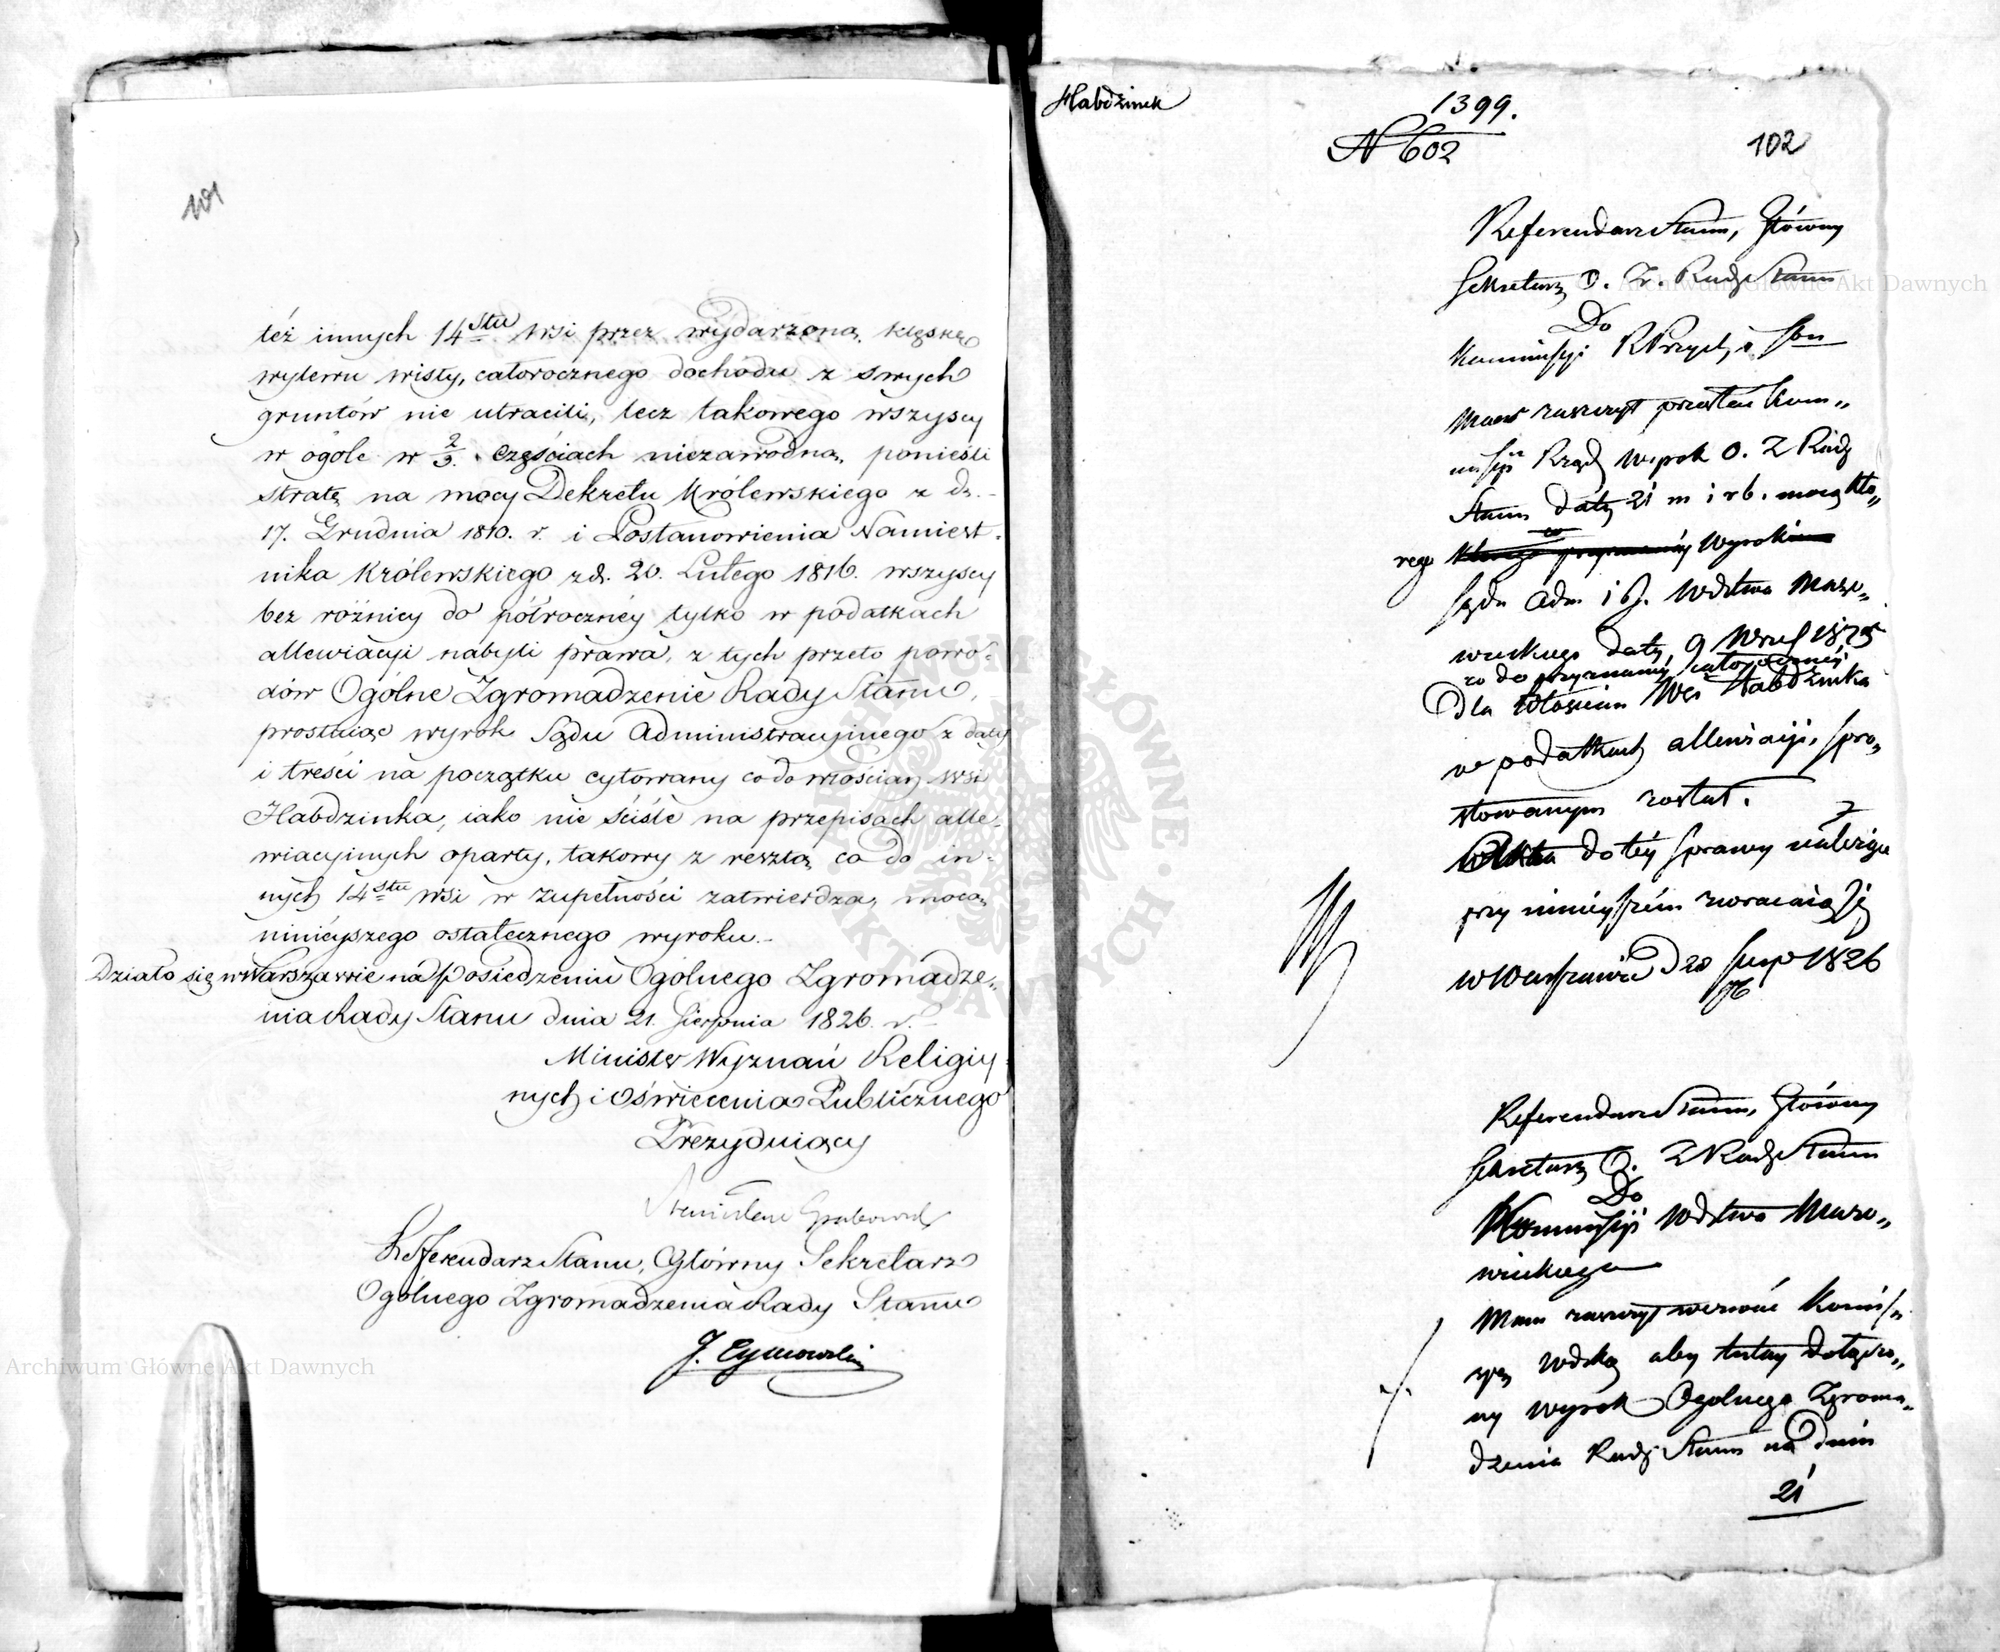 101
też innych 14stu wsi przez wydarzoną klęskę
wylewu wisły, całorocznego dochodu z swych
gruntów nie utracili, lecz takowego wszyscy
w ogóle w 2/3. częściach niezawodną ponieśli
stratę na mocy Dekretu Królewskiego z d.
17. Grudnia 1810. r. i Postanowienia Namiest-
nika Królewskiego z d. 20. Lutego 1816. wszyscy
bez różnicy do półrocznéy tylko w podatkach
allewiacyi nabyli prawa, z tych przeto powo-
dów Ogólne Zgromadzenie Rady Stanu,
prostuiąc wyrok Sądu Administracyinego z daty
i treści na początku cytowany co do włościan wsi
Habdzinka, iako nie ściśle na przepisach alle-
wiacyinych oparty, takowy z resztą co do in-
nych 14stu wsi w zupełności zatwierdza, mocą
ninieyszego ostatecznego wyroku.
Działo się w Warszawie na Posiedzeniu Ogólnego Zgromadze-
nia Rady Stanu dnia 21. Sierpnia 1826. r.
Minister Wyznań Religiy-
nych i Oświecenia Publicznego
Prezyduiący
Stanisław Grabowski
Referendarz Stanu, Główny Sekretarz
Ogólnego Zgromadzenia Rady Stanu
J. Tymowski
Habdzinek
1399.
N 602
102
Referendarz Stanu, Główny
Sekretarz O. Z. Rady Stanu
Do
Kommissyi R Przych i Sku
Mam zaszczyt przesłać Kom-
missyi Rząd wyrok O. Z Rady
Stanu daty 21 m i r b. mocą któ-
rego wyrok
Sądu Adm i S. Wdztwa Mazo-
wieckiego daty 9 Wrześ 1825
co do przyznanéy całoroczney
Dla Włościan Wsi Habdzinka
w podatkach allewiacyi, spro-
stowanym został.
Akta do téy sprawy należące
przy ninieyszém zwracaią się
w Warszawie D 28 Sierp 1826
Referendarz Stanu, Główny
Sekretarz O. Z Rady Stanu
Do
Kommissyi Wdztwa Mazo-
wieckiego
Mam zaszczyt wezwać Komis-
syą Wdzką aby tutay dołączo-
ny wyrok Ogólnego Zgroma-
dzenia Rady Stanu na dniu
21
Archiwum Główne Akt Dawnych
Archiwum Główne Akt Dawnych
ARCHIWUM GŁÓWNE · AKT DAWNYCH ·